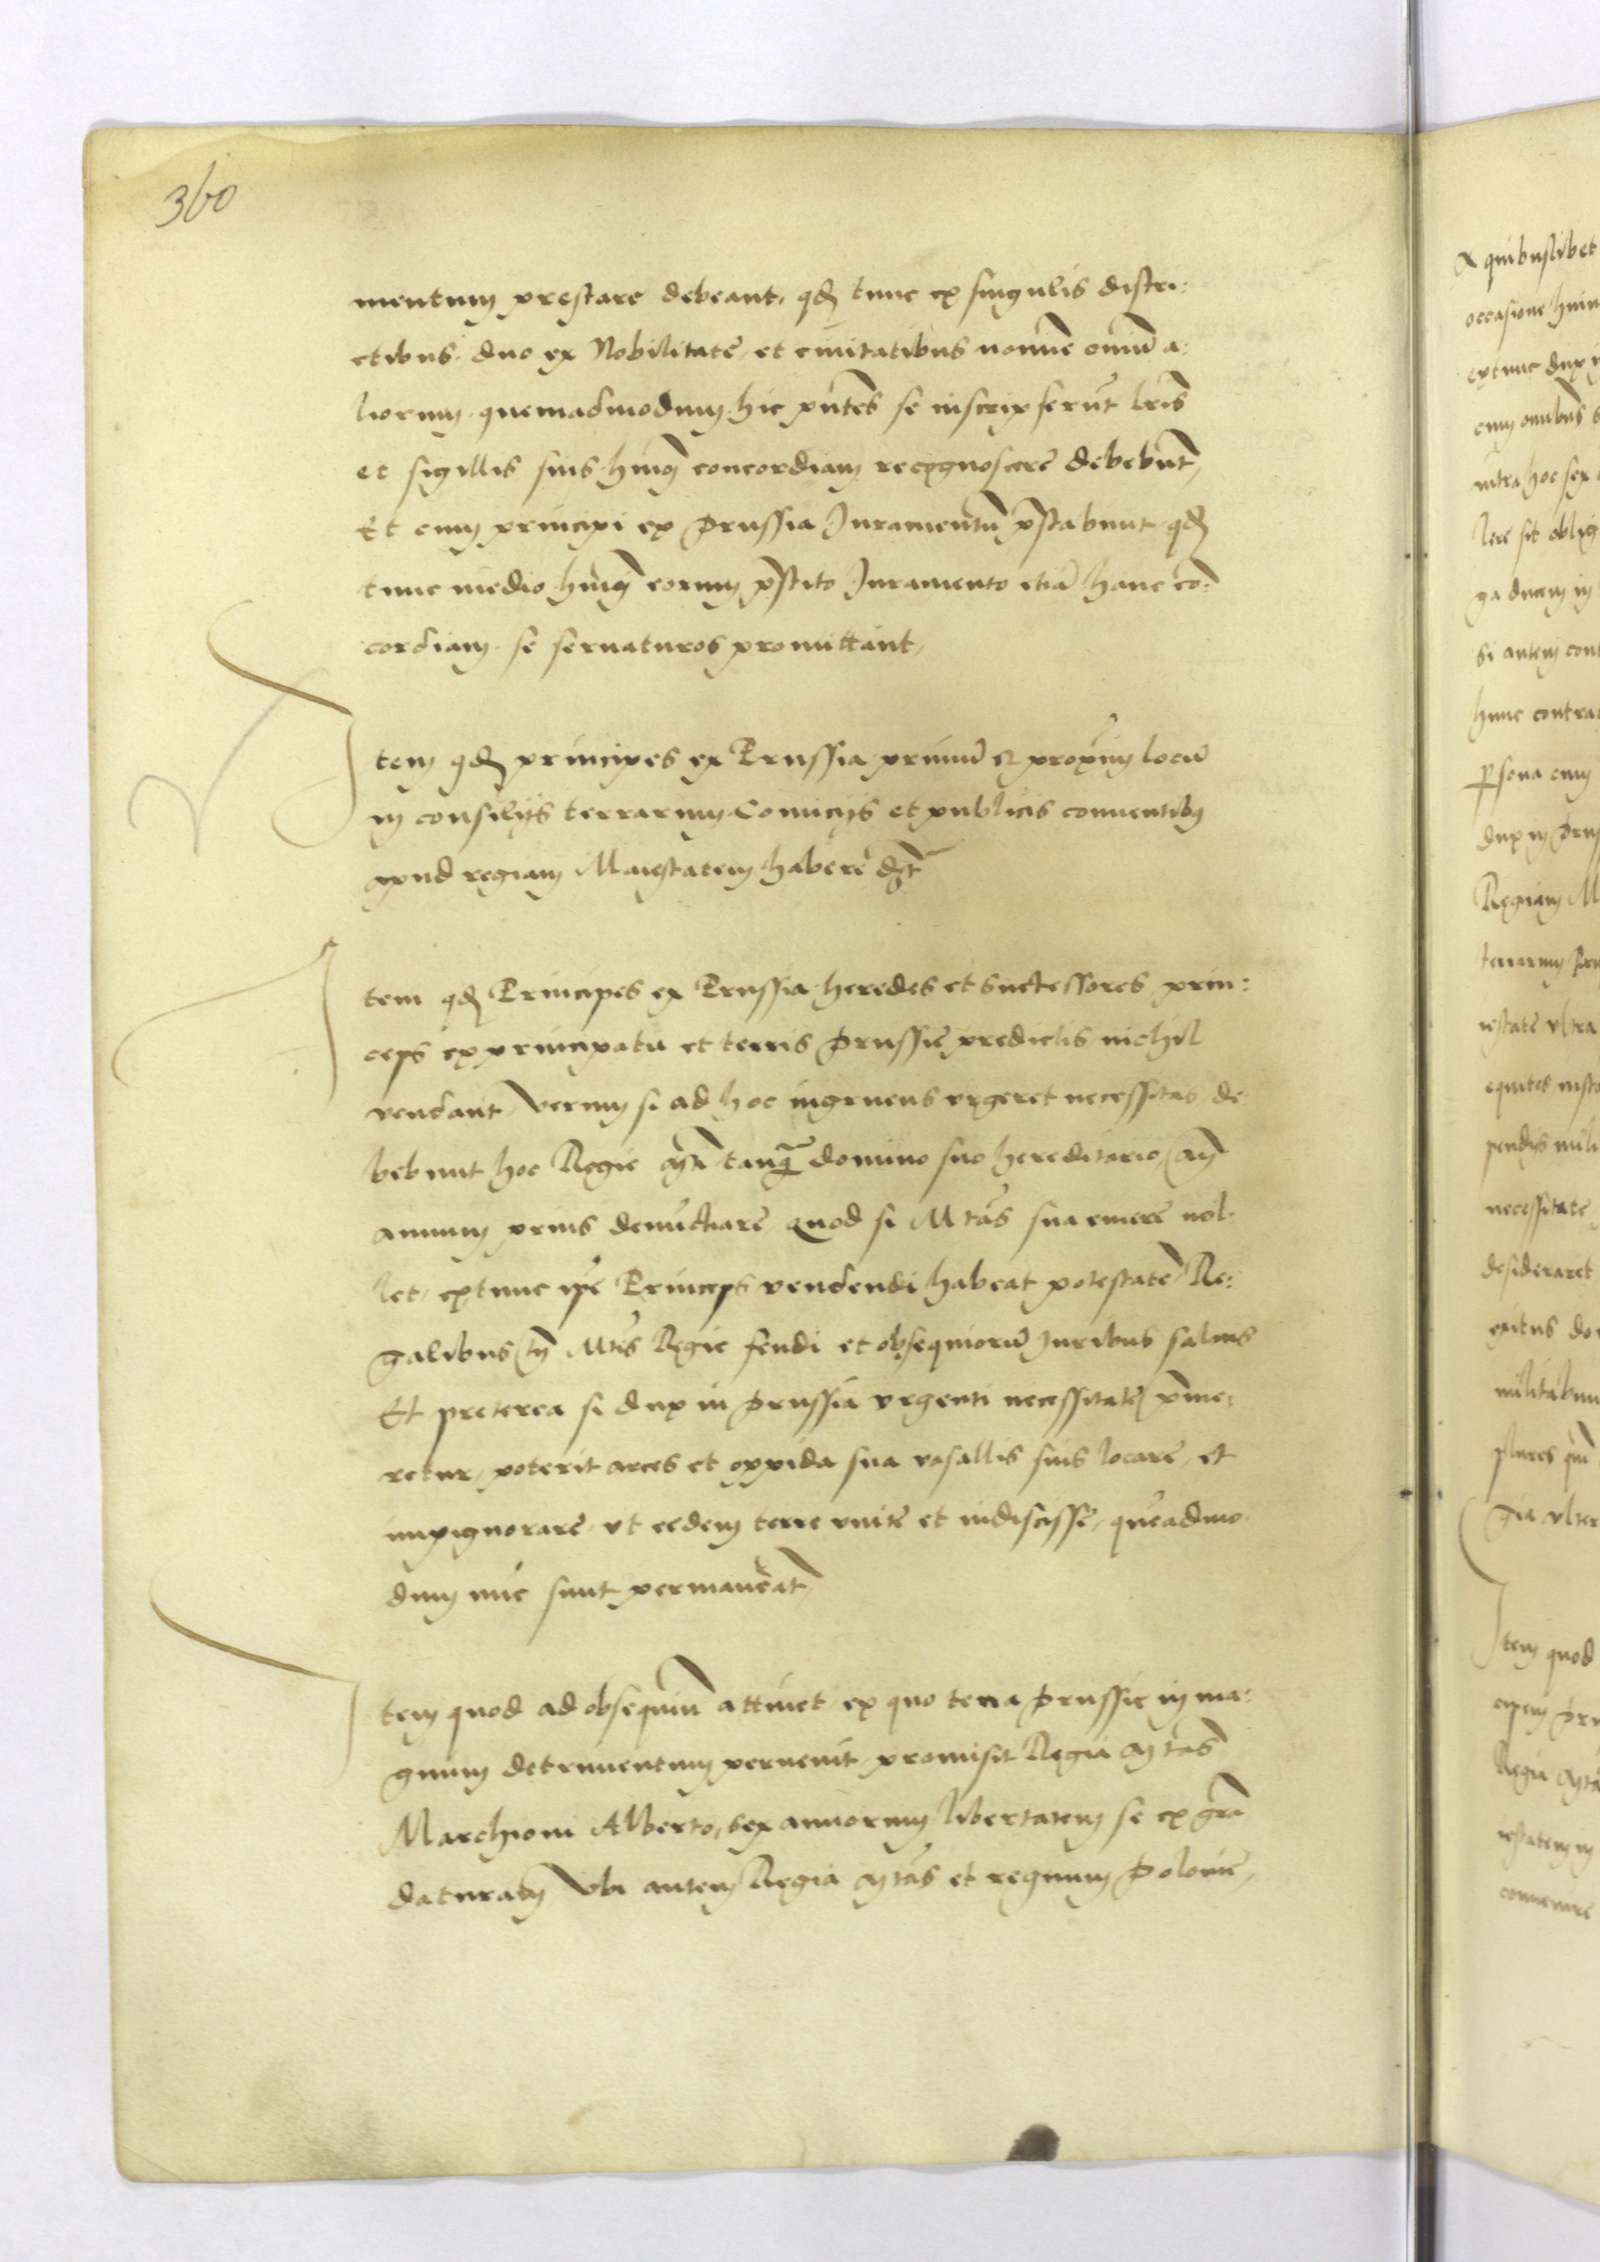 360
mentum prestare debeant, qđ tunc ex singulis distri:
ctibus duo ex Nobilitate, et ciuitatibus nomine omniū a:
liorum quemadmodum hic pn̄tes se inscripserūt lrīs
et sigillis suis hmōi concordiam recognoscere debebunt,
Et cum principi ex Prussia Juramentū p̄stabunt qđ
tunc medio hmōi eorum p̄stito Juramento etiā hanc cō:
cordiam se seruaturos promittant,
Item qđ principes ex Prussia primū et proximū locū
in consilijs terrarum Comicijs et publicis conuentibus
apud regiam Maiestatem habere
Item qđ Principes ex Prussia heredes et Successores prin:
ceps ex principatu et terris Prussie predictis nichil
vendant, verum si ad hoc ingruens vrgeret necessitas de
bebunt hoc Regie Mti tanq̄ domino suo hereditario, an̄
annum prius denūctiare, quod si Mtās sua emere nol
let, extunc ip̄e Princeps vendendi habeat potestatē, Re:
galibus tn̄ Mtīs Regie feudi et obsequiorū Juribus saluis
Et preterea si dux in Prussia vrgenti necessitate p̄me:
retur, poterit arces et oppida sua vasallis suis locare, et
impignorare, vt eedem terre vnite et indiscisse, quēadmo
dum nūc sunt permaneāt,
Item quod ad obsequiū attinet ex quo terra Prussie in ma:
gnum detrimentum peruenit, promisit Regia Mtās
Marchioni Alberto, sex annorum libertatem se ex grā
daturam, Vbi autem Regia Mtās et regnum Polonie,
&amp; quibuslibet
occasione huiu
extunc dux i
cum omnibus
intra hoc sex
lere sit oblig
ga ducem in
Si autem cont
hunc contra
p̄sona cum
dux in Prus
Regiam M
terrarum Pru
iestate vltra
equites
pendijs mili
necessitate
desideraret
militabun
plures
vlter
Item quod
cipem Pru
Regia Mta
iestatem in
conuenire